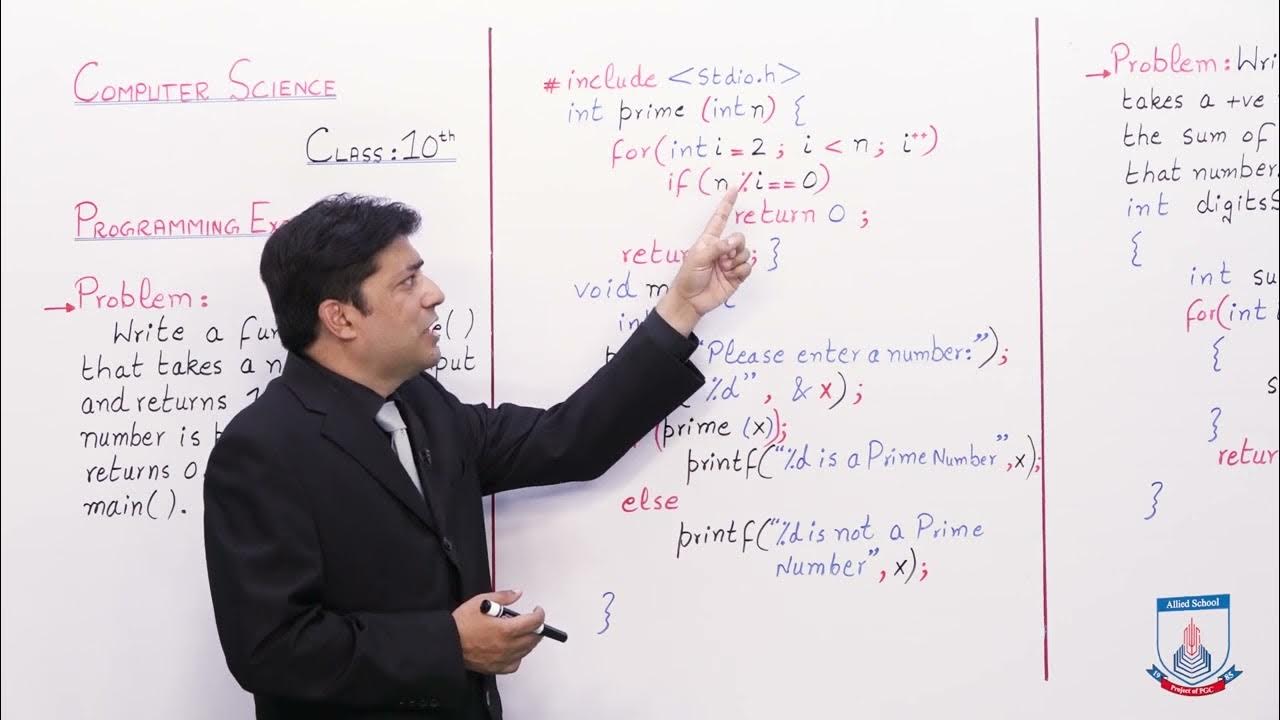 COMPUTER SCIENCE
CLASS: 10th
PROGRAMMING
→Problem:
Write a
that takes a
and returns
number is
returns 0
main().
# include <stdio.h>
int prime (int n) {
for(int i = 2 ; i < n; i++)
if (n % i == 0)
return 0 ;
; }
void
{
"Please enter a number:");
"%d", & x);
(prime (x));
printf("%d is a Prime Number", x);
else
printf("%d is not a Prime
Number", x);
}
→Problem:
takes a +ve
the sum of
that number
int
{
int
for(int
{
}
}
Allied School
1985
Project of PGC